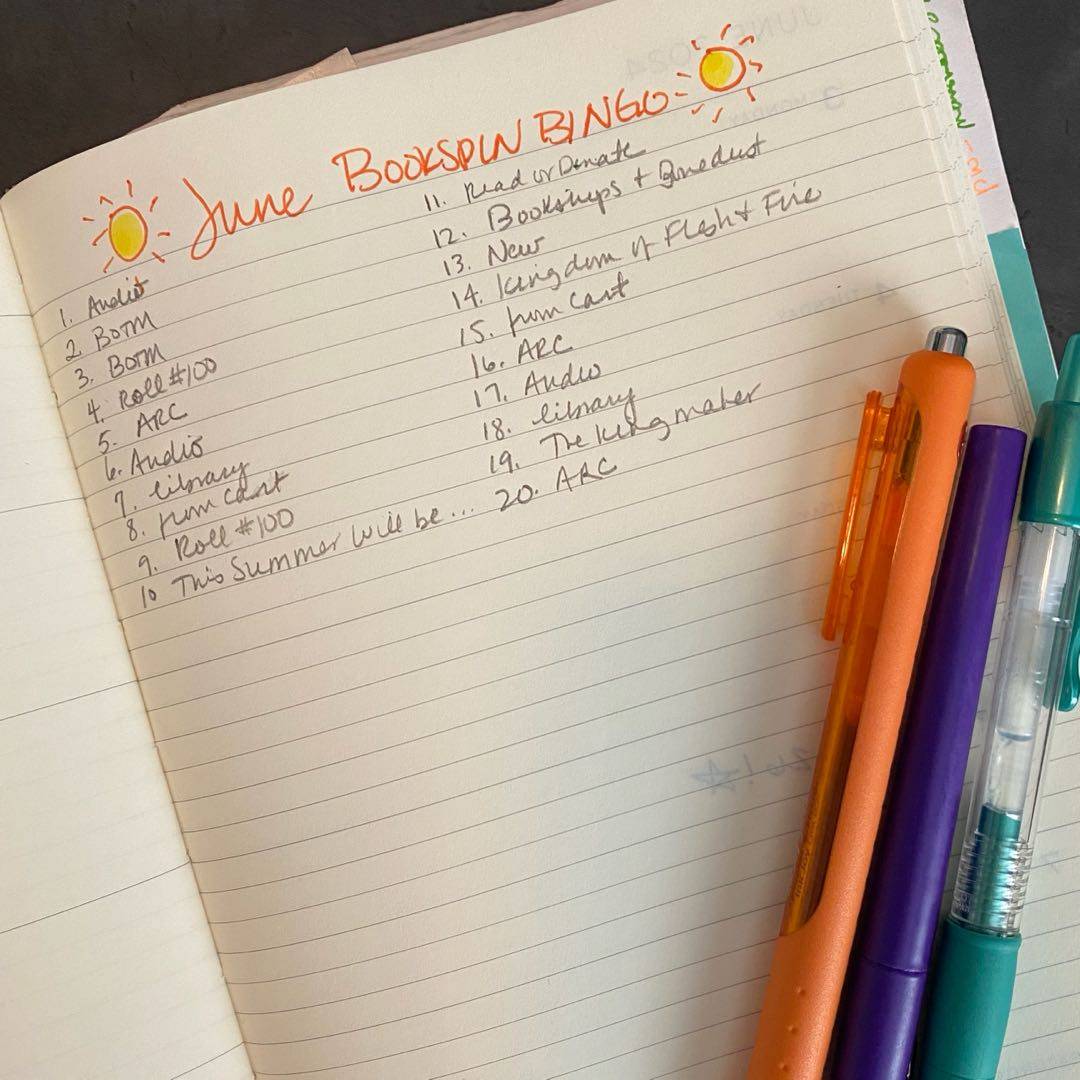 June BOOKSPIN BINGO
1. Audio
2. BOTM
3. BOTM
4. Roll #100
5. ARC
6. Audio
7. library
8. from cart
9. Roll #100
10 This Summer Will be...
11. Read or Donate
12. Bookshops + Bonedust
13. New
14. Kingdom of Flesh + Fire
15. from cart
16. ARC
17. Audio
18. library
19. The Kingmaker
20. ARC
JUNE 2024
3 MONDAY